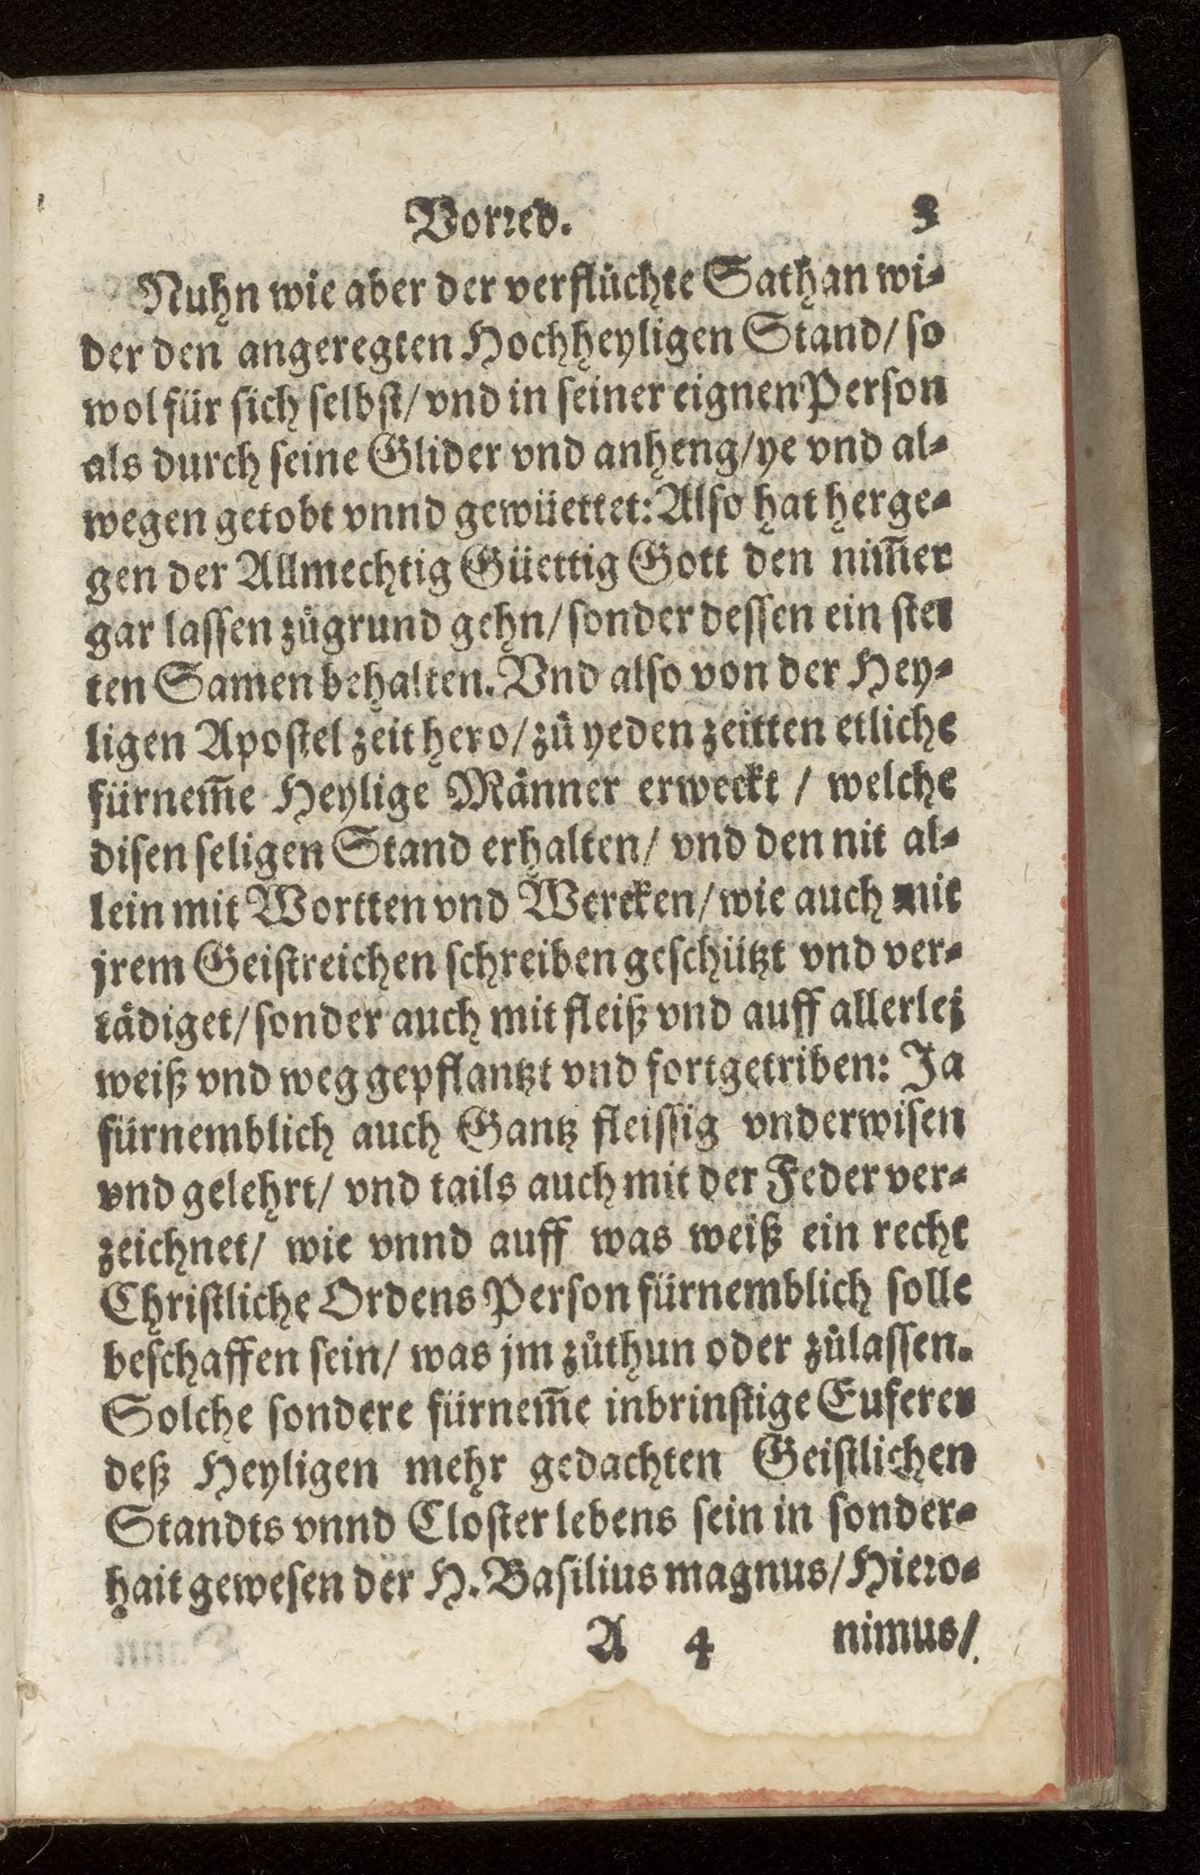 Vorred. 3
Nuhn wie aber der verflůchte Sathan wi-
der den angeregten Hochheyligen Stand/ so
wol für sich selbst/ vnd in seiner eignen Person
als durch seine Glider vnd anheng/ ye vnd al-
wegen getobt vnnd gewüettet: Also hat herge-
gen der Allmechtig Güettig Gott den nim̅er
gar lassen zůgrund gehn/ sonder dessen ein stet
ten Samen behalten. Vnd also von der Hey-
ligen Apostel zeit hero/ zů yeden zeitten etliche
fürnem̅e Heylige Männer erweckt / welche
disen seligen Stand erhalten/ vnd den nit al-
lein mit Wortten vnd Wercken/ wie auch mit
jrem Geistreichen schreiben geschützt vnd ver-
tädiget/ sonder auch mit fleiß vnd auff allerlej
weiß vnd weg gepflantzt vnd fortgetriben: Ja
fürnemblich auch Gantz fleissig vnderwisen
vnd gelehrt/ vnd tails auch mit der Feder ver-
zeichnet/ wie vnnd auff was weiß ein recht
Christliche Ordens Person fürnemblich solle
beschaffen sein/ was jm zůthun oder zůlassen.
Solche sondere fürnem̅e inbrinstige Euferer
deß Heyligen mehr gedachten Geistlichen
Standts vnnd Closter lebens sein in sonder-
hait gewesen der H. Basilius magnus/ Hiero-
A 4 nimus/